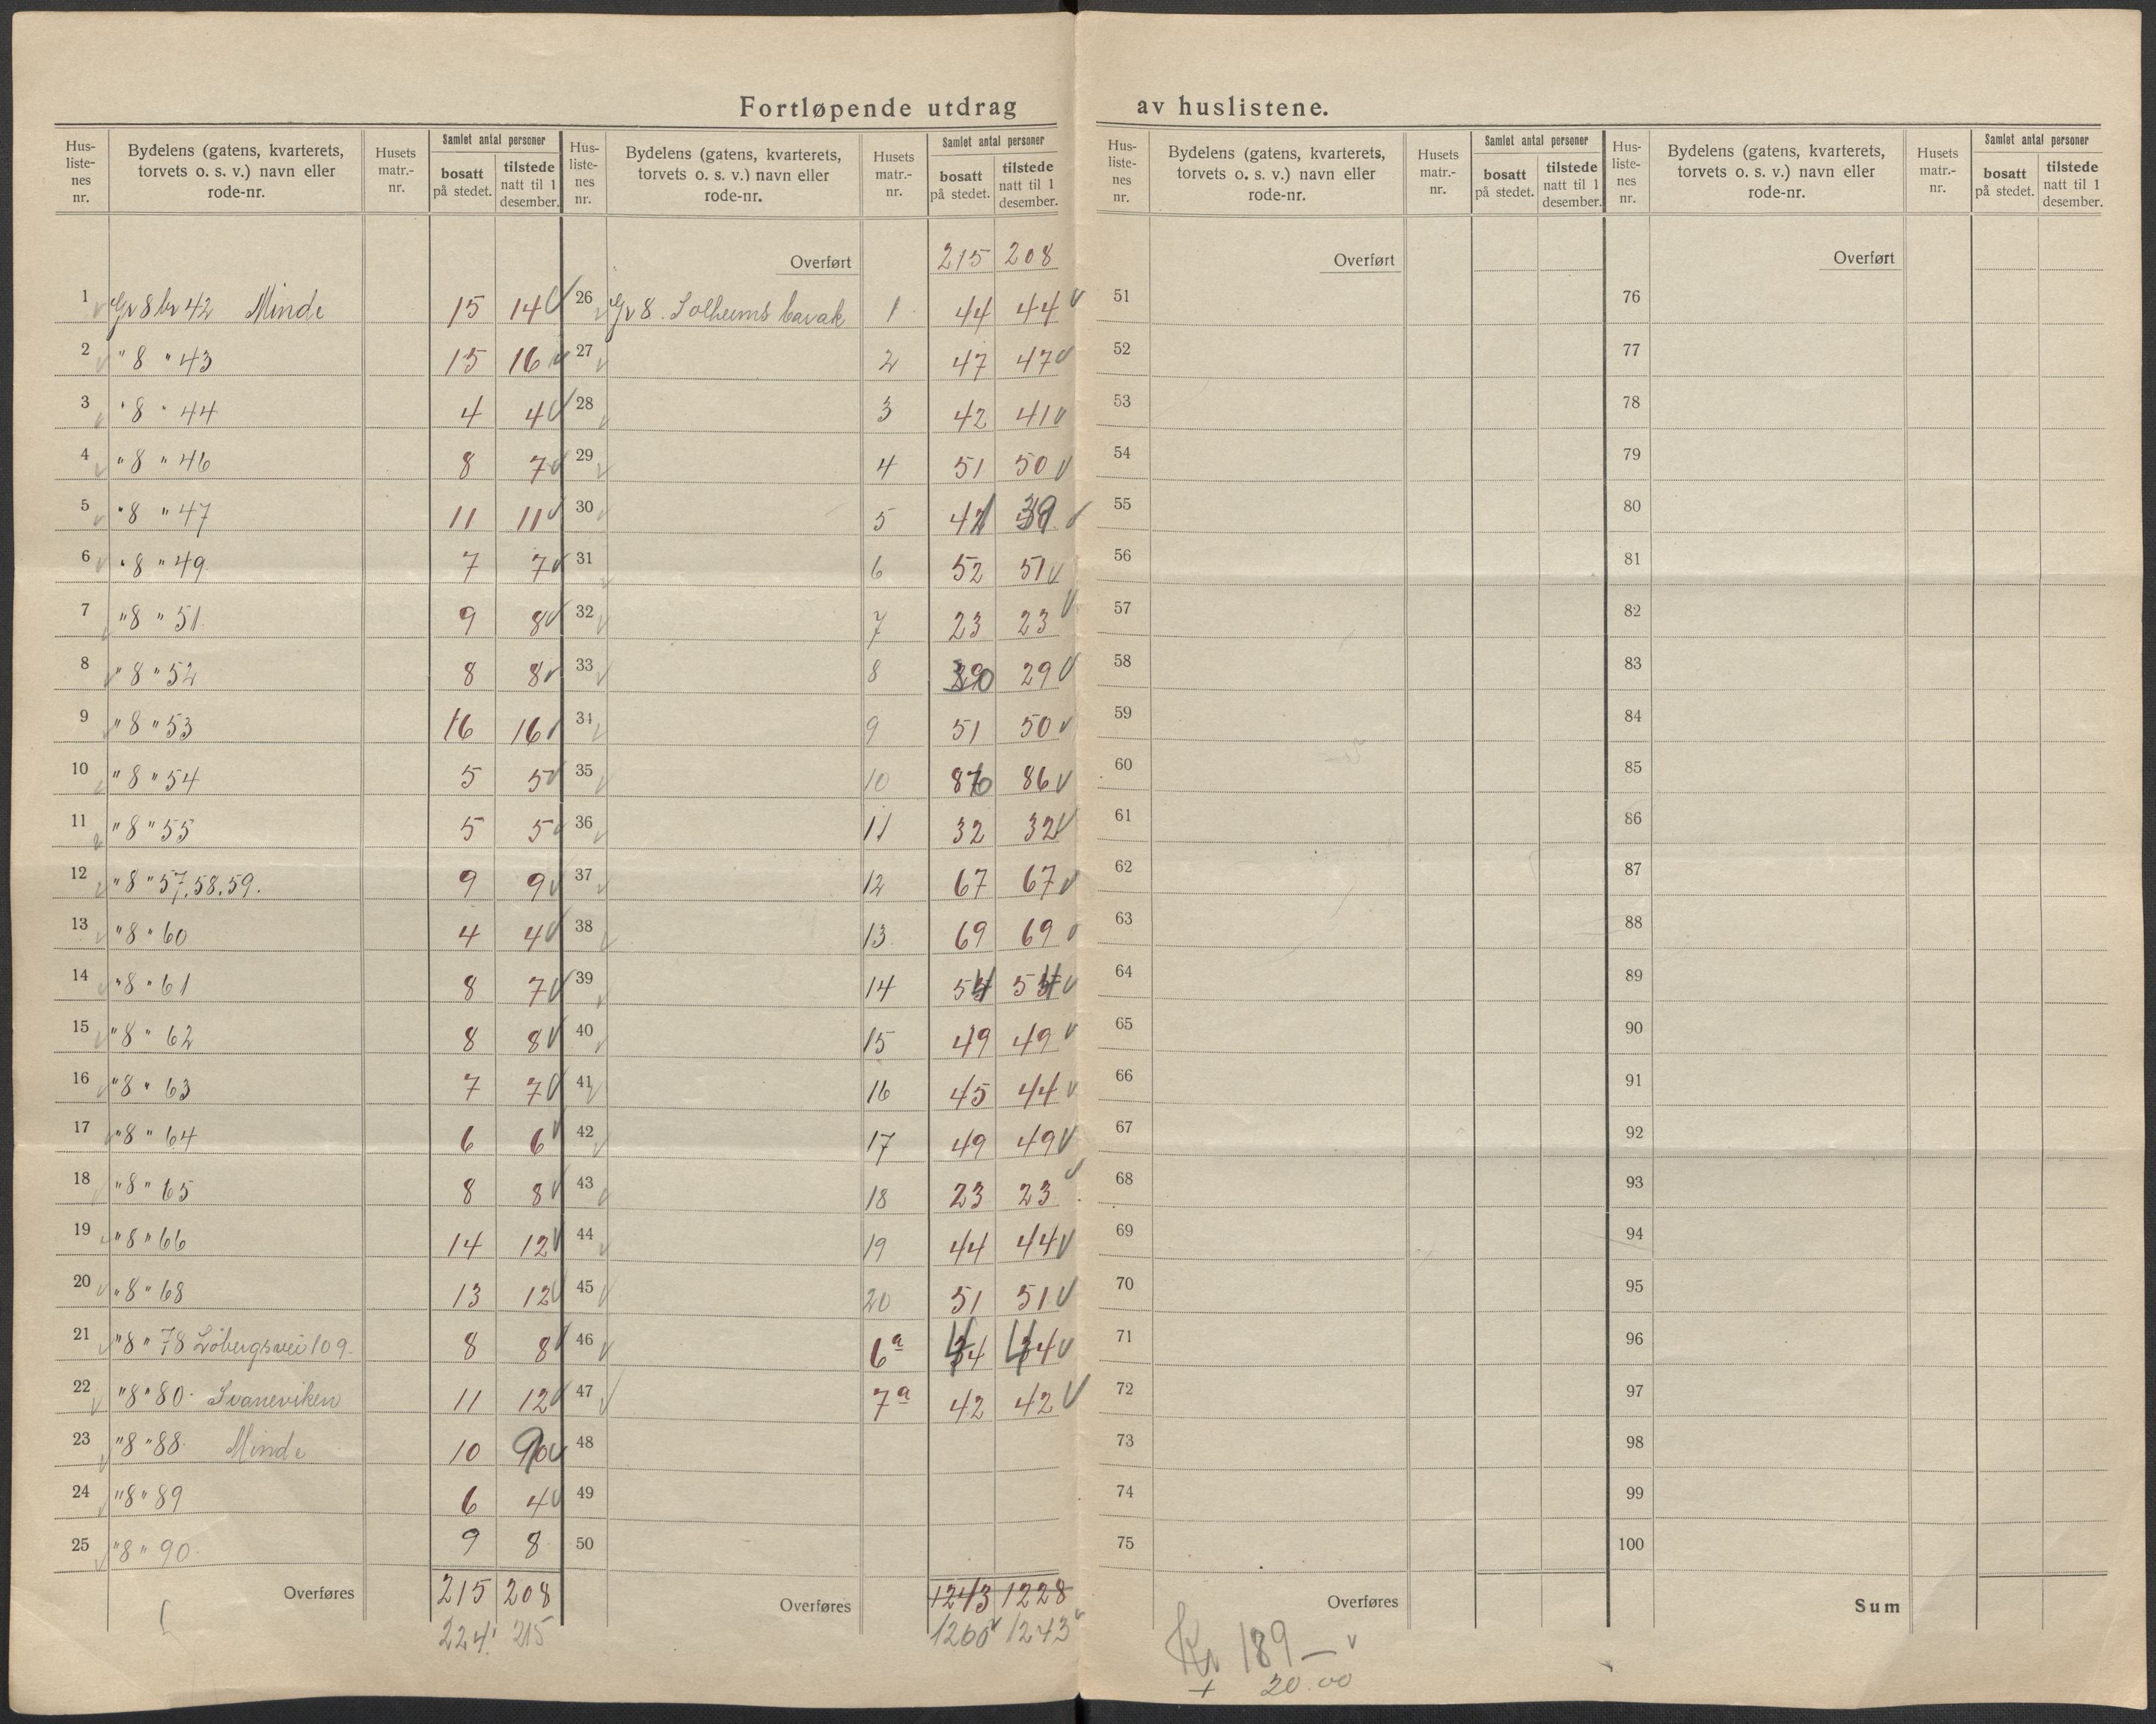 Fortløpende utdrag av huslistene.
Hus-listenes nr. Bydelens (gatens, kvarterets, torvets o. s. v.) navn eller rode-nr. Husets matr.-nr. Samlet antal personer bosatt på stedet. tilstede natt til 1 desember.
1 Gr 8 br 42 Minde 15 14
2 " 8 " 43 15 16
3 " 8 " 44 4 4
4 " 8 " 46 8 7
5 " 8 " 47 11 11
6 " 8 " 49 7 7
7 " 8 " 51. 9 8
8 " 8 " 52 8 8
9 " 8 " 53 16 16
10 " 8 " 54 5 5
11 " 8 " 55 5 5
12 " 8 " 57, 58, 59. 9 9
13 " 8 " 60 4 4
14 " 8 " 61 8 7
15 " 8 " 62 8 8
16 " 8 " 63 7 7
17 " 8 " 64 6 6
18 " 8 " 65 8 8
19 " 8 " 66 14 12
20 " 8 " 68 13 12
21 " 8 " 78 Löbergsvei 109. 8 8
22 " 8 " 80 Svaneviken 11 12
23 " 8 " 88 Minde 10 9
24 " 8 " 89 6 4
25 " 8 " 90 9 8
Overføres 215 208
224 215
Hus-listenes nr. Bydelens (gatens, kvarterets, torvets o. s. v.) navn eller rode-nr. Husets matr.-nr. Samlet antal personer bosatt på stedet. tilstede natt til 1 desember.
Overført 215 208
26 Gr 8. Solheims 1 44 44
27 2 47 47
28 3 42 41
29 4 51 50
30 5 41 39
31 6 52 51
32 7 23 23
33 8 30 29
34 9 51 50
35 10 86 86
36 11 32 32
37 12 67 67
38 13 69 69
39 14 54 54
40 15 49 49
41 16 45 44
42 17 49 49
43 18 23 23
44 19 44 44
45 20 51 51
46 6a 44 44
47 7a 42 42
48
49
50
Overføres 1243 1228
1260 1243
Hus-listenes nr. Bydelens (gatens, kvarterets, torvets o. s. v.) navn eller rode-nr. Husets matr.-nr. Samlet antal personer bosatt på stedet. tilstede natt til 1 desember.
Overført
51
52
53
54
55
56
57
58
59
60
61
62
63
64
65
66
67
68
69
70
71
72
73
74
75
Overføres
Kr 189 —
+ 20.00
Hus-listenes nr. Bydelens (gatens, kvarterets, torvets o. s. v.) navn eller rode-nr. Husets matr.-nr. Samlet antal personer bosatt på stedet. tilstede natt til 1 desember.
Overført
76
77
78
79
80
81
82
83
84
85
86
87
88
89
90
91
92
93
94
95
96
97
98
99
100
Sum